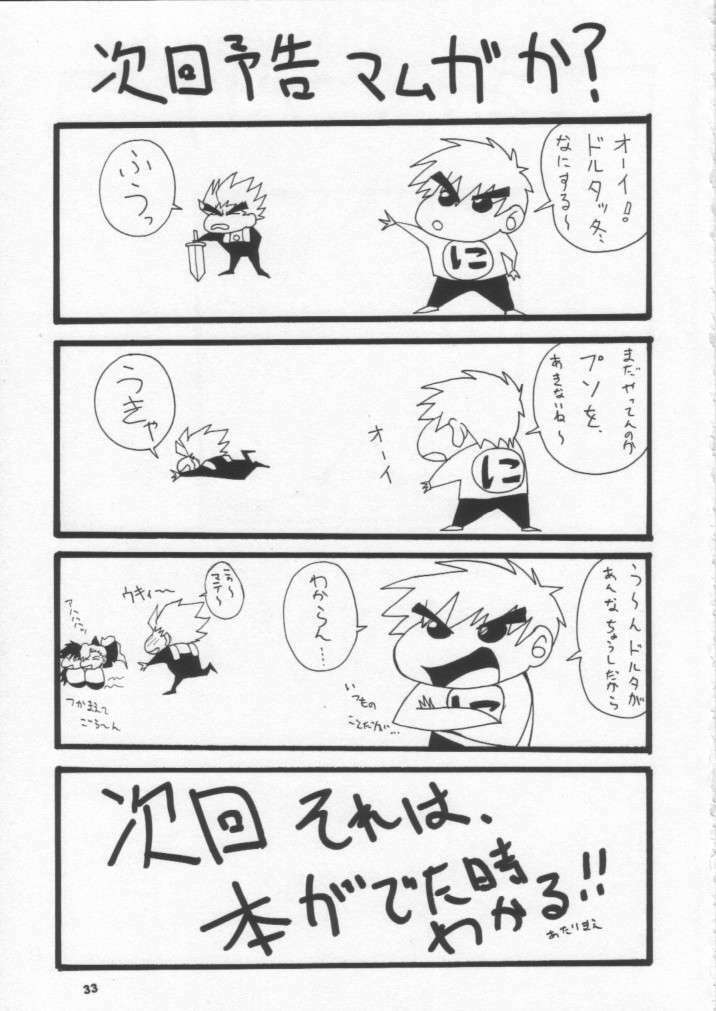 次回予告 マムガか?
オーイ!!
ドルタッ冬、
なにする〜
に
ふうっ
まだやってんのか
プソを、
あきないね〜
に
オーイ
うきゃ
う〜んドルタが
あんなちょうしだから
わからん…
いつもの
ことだが…
に
こら〜
マテ〜
ウキィ〜
アハハハッ
つかまえて
ごら〜ん
次回 それは、
本がでた時
わかる!!
あたりまえ
33